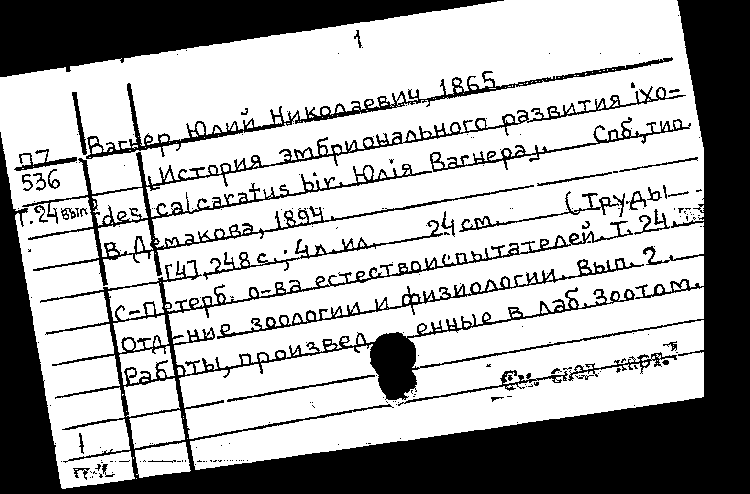 1
Вагнер, Юлий Николаевич, 1865
П7
536
Т.24 вып 2
История эмбрионального развития ixo-
des calcaratus bir. Юлiя Вагнера. Спб., тип
В. Демакова, 1894.
[4], 248 с.; 4 л. ил. 24 cm. (Труды
С-Петерб. о-ва естествоиспытателей. Т. 24.
Отд-ние зоологии и физиологии. Вып. 2.
Работы, произвед енные в лаб. Зоотом.
См. след карт.
1